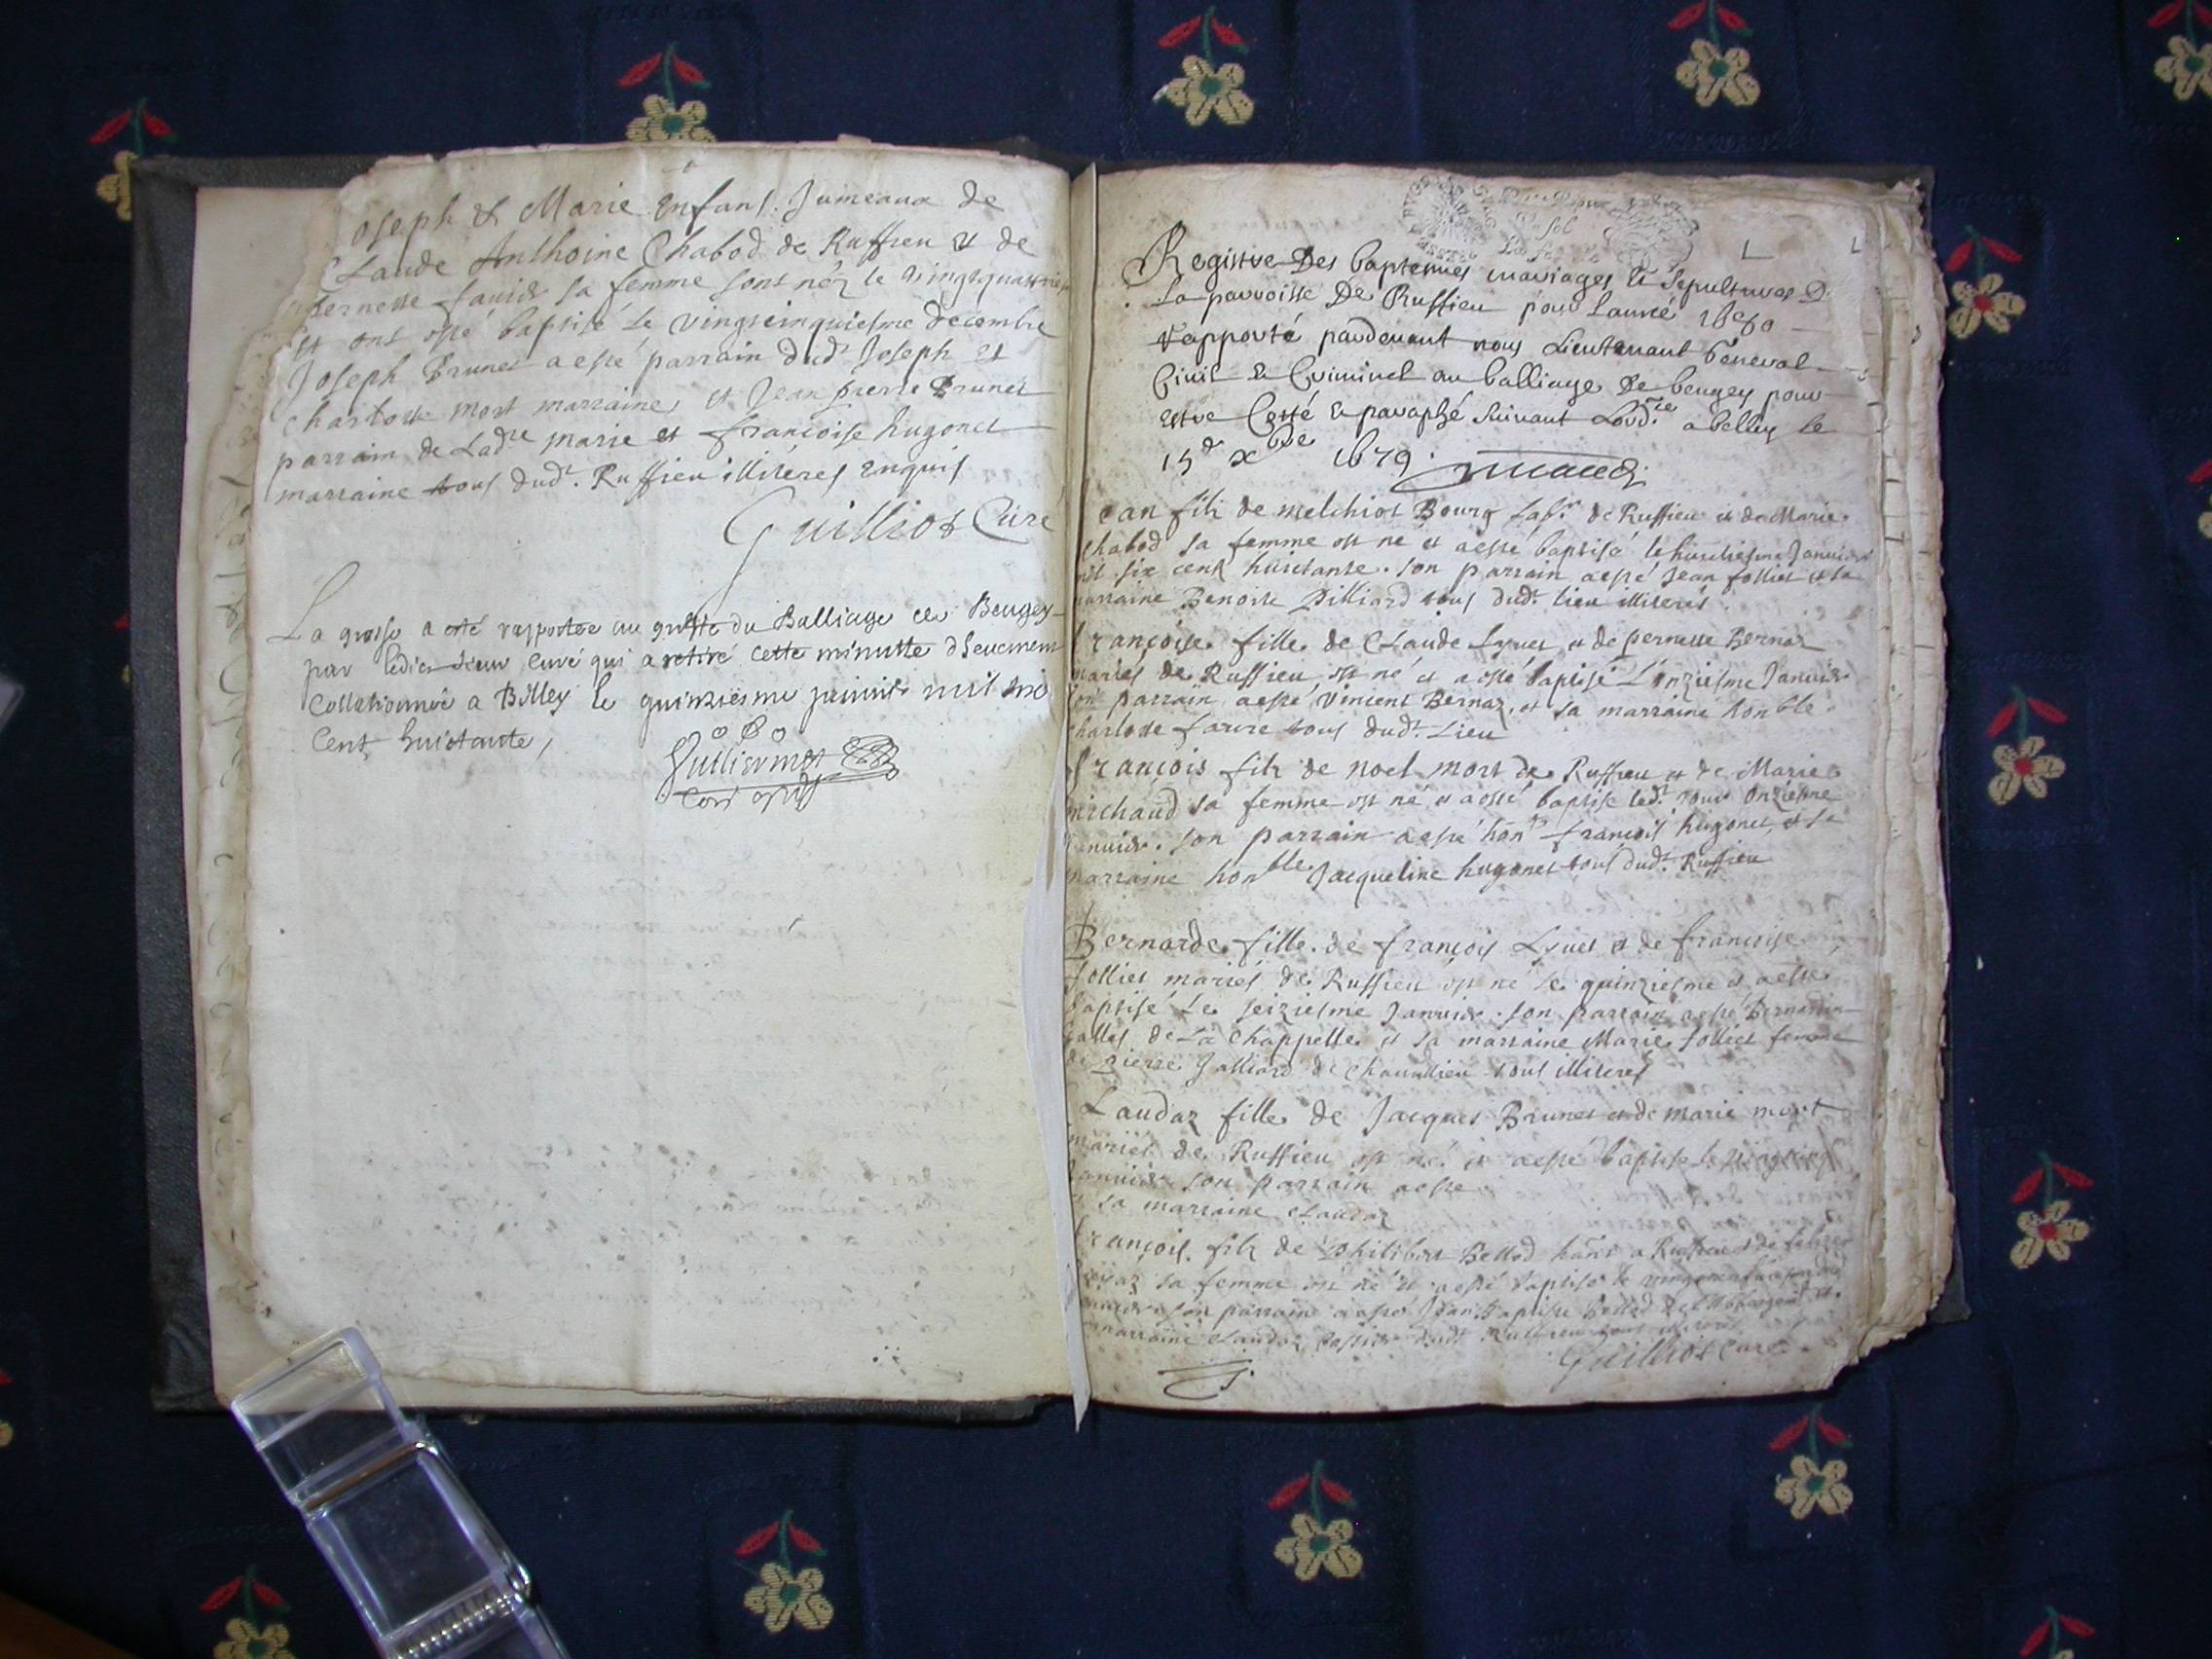 oseph et Marie enfans Jumeaux de
Claude Anthoine Chabod de Ruffieu et de
pernette sa femme sont néz le vingtquatriesme
et ont esté baptisé le vingtcinquiesme decembre
Joseph Brunet a esté parrain dudt Joseph et
Charlotte mort marraine, et Jean pierre Brunet
parrain de Ladte marie et françoise hugonet
marraine tous dudt. Ruffieu illiterés enquis
Guilliot Curé
La grosse a esté rapportée au greffe du Balliage de Beugey
par ledict sieur curé qui a retiré cette minutte dheuement
Collationnée a Billey le quinziesme janvier mil six
Cent huictante,
Registre Des baptesmes mariages et sepultures D
La parroisse De Ruffieu pour l'année 1680
rapporté pardevant nous Lieutenant General
Civil et Criminel au balliage de beugey pour
estre Cotté et paraphé suivant Lordce a belley le
15e Xbre 1679
ean filz de melchiot Bourg de Ruffieu et de Marie
chabod sa femme est né et a esté baptisé le huictiesme Janvier
mil six centz huictante. son parrain a esté Jean follier et sa
marraine Benoite Pilliard tous dudt. lieu illiterés.
françoise fille de Claude Lyuet et de pernette Bernaz
mariés de Ruffieu est né et a esté baptisé L'onziesme Janvier
son parrain a esté Vincent Bernaz, et sa marraine honble
charlotte favre tous dudt. Lieu
françois filz de noel mort de Ruffieu et de Marie
michaud sa femme est né et a esté baptisé ledt. Jour onziesme
Janvier. son parrain a esté hon françois hugonet, et sa
marraine honble Jacqueline hugonet tous dudt. Ruffieu
Bernarde fille de françois Lyuet et de françoise
follier mariés de Ruffieu est né le quinziesme et a esté
baptisé Le seiziesme Janvier. son parrain a esté Bernardin
de La Chappelle et sa marraine Marie follier femme
de pierre Jalliard de tous illiterés
Laudaz fille de Jacques Brunet et de marie mort
mariés de Ruffieu est né et a esté baptisé le
Janvier son parrain a esté
et sa marraine claudaz
françois filz de philibert Bellod a Ruffieu et de
sa femme est né et a esté baptisé le
Janvier son parrain a esté Jean Baptiste Bellod de et
marraine claudaz dudt Ruffieu tous
Guilliot curé